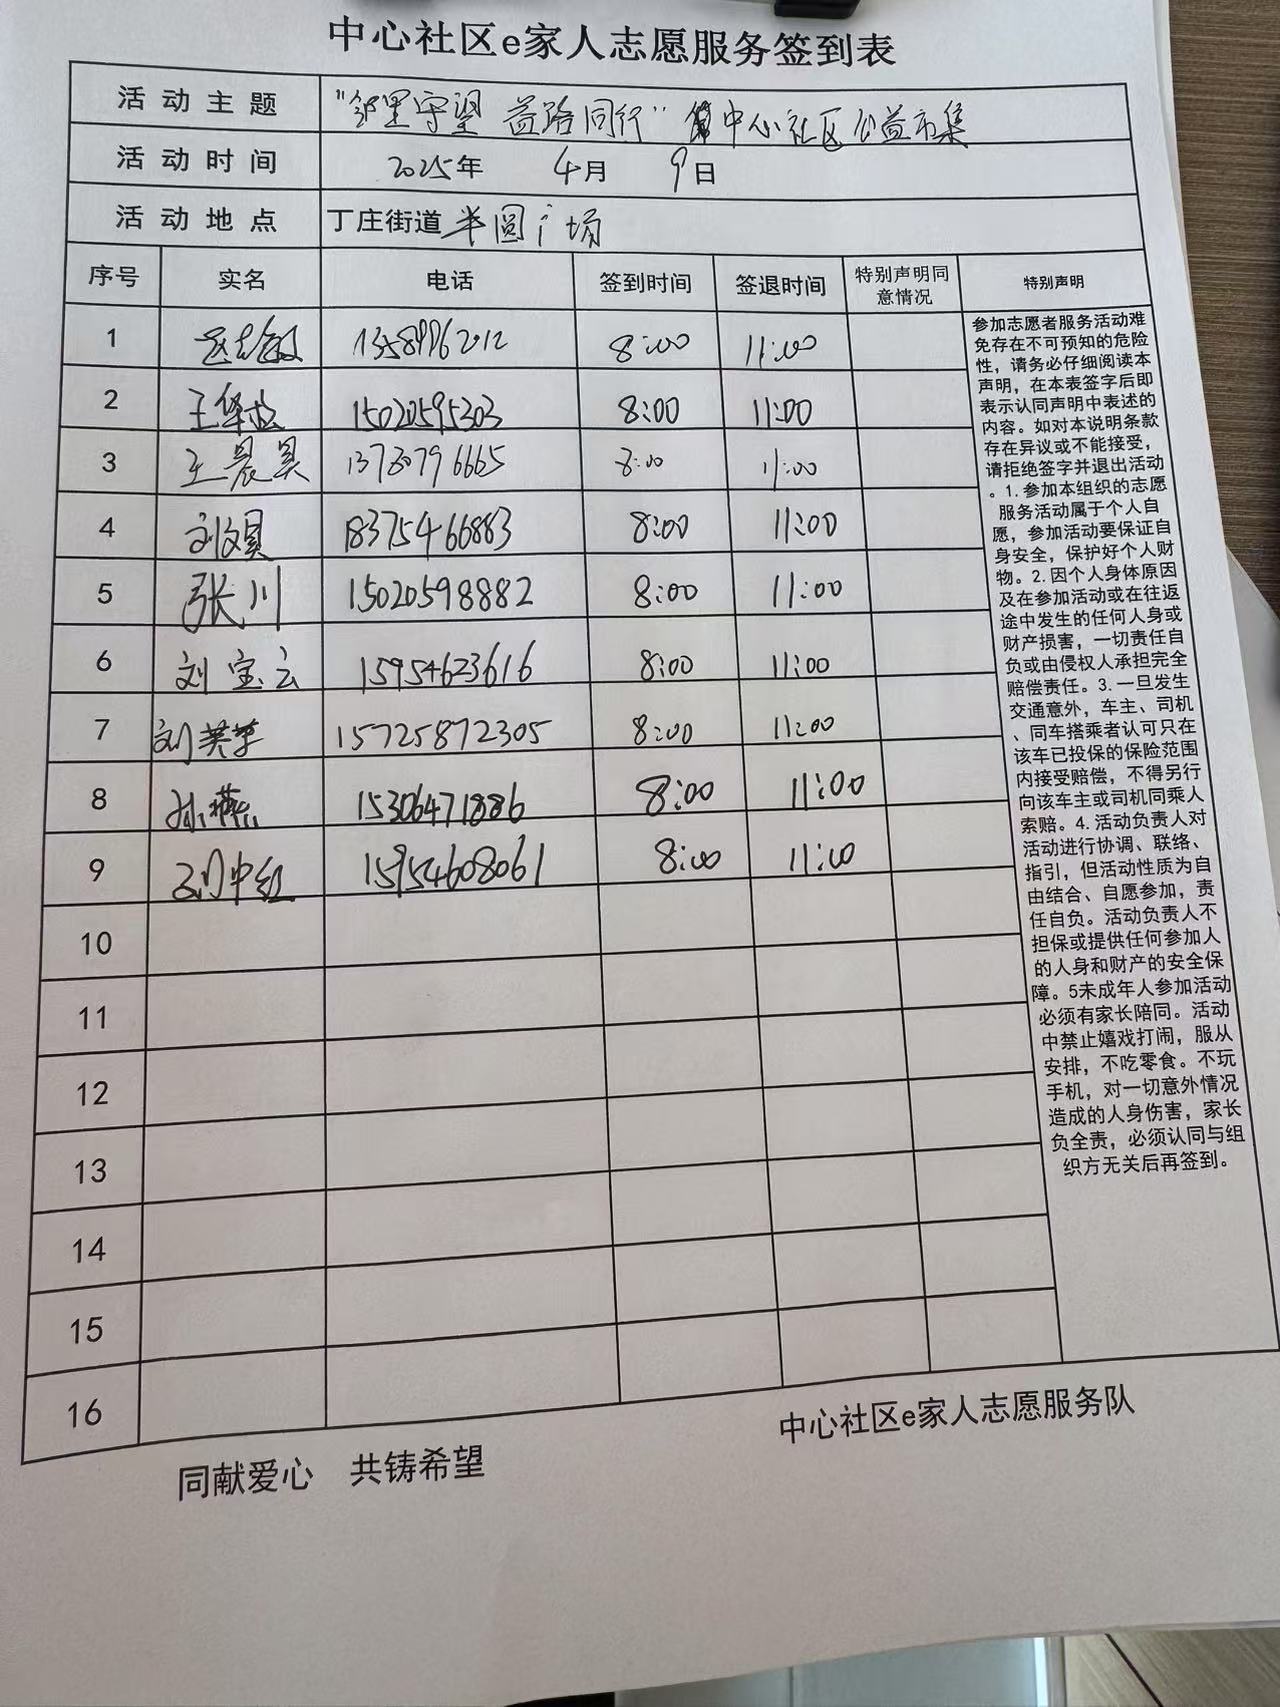 中心社区e家人志愿服务签到表
活动主题 "邻里守望 益路同行" 中心社区公益市集
活动时间 2025年 4月 9日
活动地点 丁庄街道半圆广场
序号 实名 电话 签到时间 签退时间 特别声明同意情况 特别声明
1 8:00 11:00
2 王华 15020595303 8:00 11:00
3 王晨昊 13780796665 8:00 11:00
4 刘文昊 18375466883 8:00 11:00
5 张川 15020598882 8:00 11:00
6 刘宝云 15954623616 8:00 11:00
7 刘英 15725872305 8:00 11:00
8 孙燕 15306471886 8:00 11:00
9 中红 15954608061 8:00 11:00
10
11
12
13
14
15
16
参加志愿者服务活动难
免存在不可预知的危险
性，请务必仔细阅读本
声明，在本表签字后即
表示认同声明中表述的
内容。如对本说明条款
存在异议或不能接受，
请拒绝签字并退出活动
。1.参加本组织的志愿
服务活动属于个人自
愿，参加活动要保证自
身安全，保护好个人财
物。2.因个人身体原因
及在参加活动或在往返
途中发生的任何人身或
财产损害，一切责任自
负或由侵权人承担完全
赔偿责任。3.一旦发生
交通意外，车主、司机
、同车搭乘者认可只在
该车已投保的保险范围
内接受赔偿，不得另行
向该车主或司机同乘人
索赔。4.活动负责人对
活动进行协调、联络、
指引，但活动性质为自
由结合、自愿参加，责
任自负。活动负责人不
担保或提供任何参加人
的人身和财产的安全保
障。5未成年人参加活动
必须有家长陪同。活动
中禁止嬉戏打闹，服从
安排，不吃零食。不玩
手机，对一切意外情况
造成的人身伤害，家长
负全责，必须认同与组
织方无关后再签到。
中心社区e家人志愿服务队
同献爱心 共铸希望